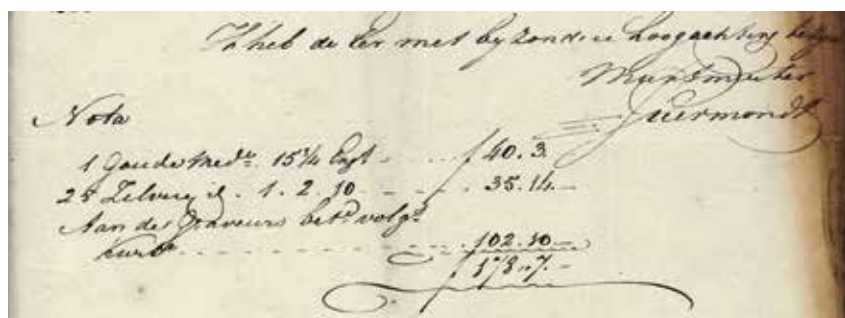 Ik heb de Eer met byzondere hoogachting te zyn
Muntmeester
Suermondt
Nota
1 Goude Med.e 15¾ Engs - - - - f 40.3.
25 Zilvere d. 1.2.10 - - - - 35.14.—
Aan des Graveurs bet.d volg.s
- - - - - - - - 102.10.—
f 178.,7.-